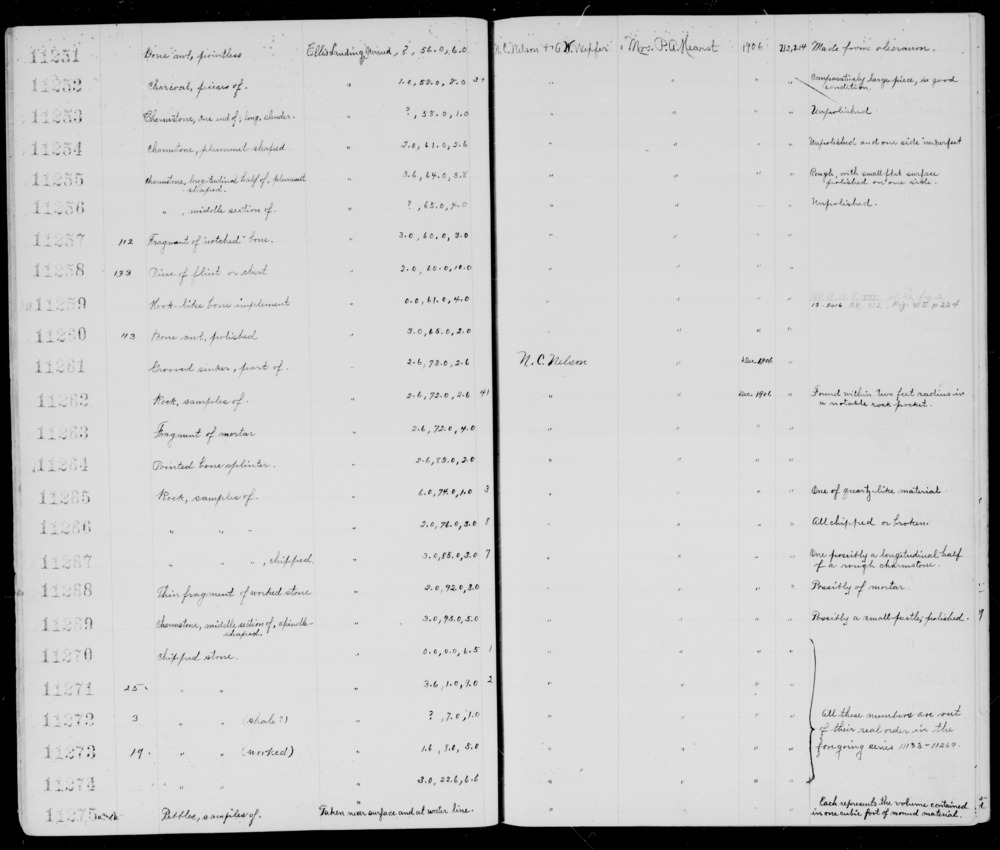 11251 Bone awl, pointless Ellis Landing Mound, ?, 56.0, 6.0 N.C. Nelson + A.W. Mrs. P.A. Hearst 1906 212,214 Made from ulna.
11252 Charcoal, pieces of. " 1.0, 58.0, 8.0 " " " Comparatively large piece, in good
condition.
11253 Charmstone, one end of; long, slender. " ?, 58.0, 1.0 " " " " Unpolished
11254 Charmstone, plummet shaped " 2.0, 61.0, 2.6 " " " " Unpolished and one side imperfect
11255 Charmstone, longitudinal half of, plummet " 3.6, 64.0, 3.8 " " " " Rough, with small flat surface
shaped. polished on one side.
11256 " , middle section of. " ?, 65.0, 4.0 " " " " Unpolished.
11257 112 Fragment of "notched" bone. " 3.0, 60.0, 3.0 " " " "
11258 133 Piece of flint or chert " 2.0, 60.0, 10.0 " " " "
11259 Hook-like bone implement " 0.0, 61.0, 4.0 " " " " p 224
11260 113 Bone awl, polished " 3.0, 65.0, 2.0 " " " "
11261 Grooved sinker, part of. " 2.6, 73.0, 2.6 N.C. Nelson " Dec. 1906 "
11262 Rock, samples of. " 2.6, 72.0, 2.6 41 " " Dec. 1906 " Found within two feet radius in
a notable rock pocket.
11263 Fragment of mortar " 2.6, 72.0, 4.0 " " " "
11264 Pointed bone splinter. " 2.6, 83.0, 2.0 " " " "
11265 Rock, samples of. " 6.0, 74.0, 1.0 3 " " " " One of quartz-like material
11266 " " " " 2.0, 76.0, 3.0 8 " " " " All chipped or broken.
11267 " " " , chipped. " 3.0, 85.0, 3.0 7 " " " " One possibly a longitudinal half
of a rough charmstone.
11268 Thin fragment of worked stone " 2.0, 92.0, 3.0 " " " " Possibly of mortar.
11269 Charmstone, middle section of, spindle- " 3.0, 95.0, 5.0 " " " " Possibly a small pestle; polished.
shaped.
11270 Chipped stone. " 0.0, 0.0, 6.5 1 " " " "
11271 25 " " " 3.6, 1.0, 8.0 2 " " " "
11272 3 " " (shale?) " ?, 7.0, 1.0 " " " " All these numbers are out
of their real order in the
11273 19. " " (worked) " 1.6, 8.0, 5.0 " " " " foregoing series 11133-11269.
11274 " " " 3.0, 22.6, 6.6 " " " "
11275 Pebbles, samples of. Taken near surface and at water line. " " " " Each represents the volume contained
in one cubic foot of mound material.